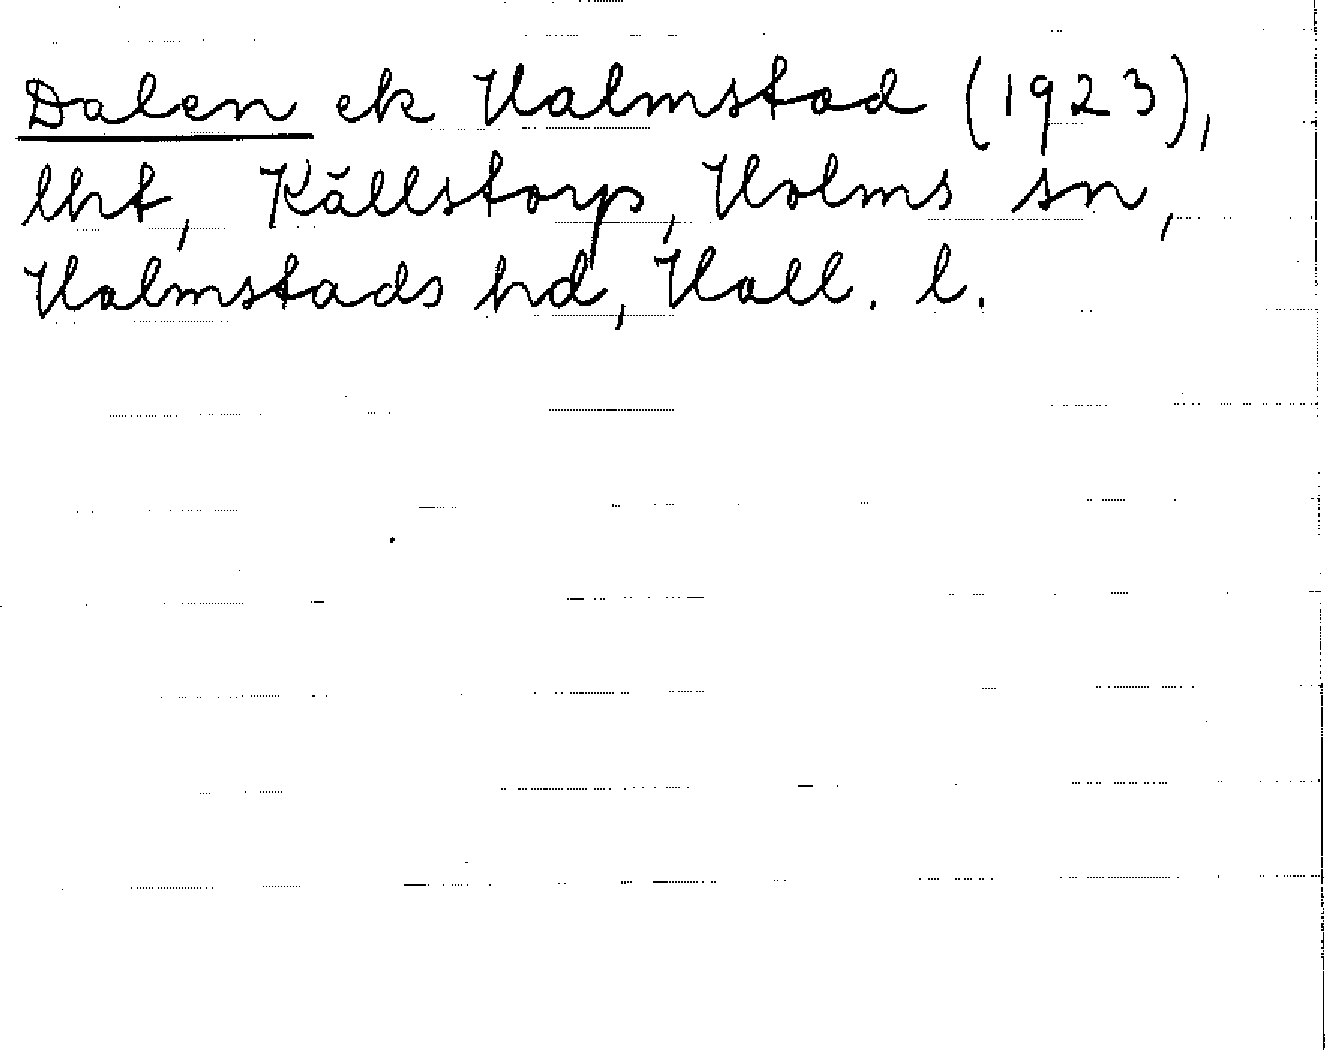 Dalen ek Halmstad (1923),
lht, Källstorp, Holms sn,
Halmstads hd, Hall. l.